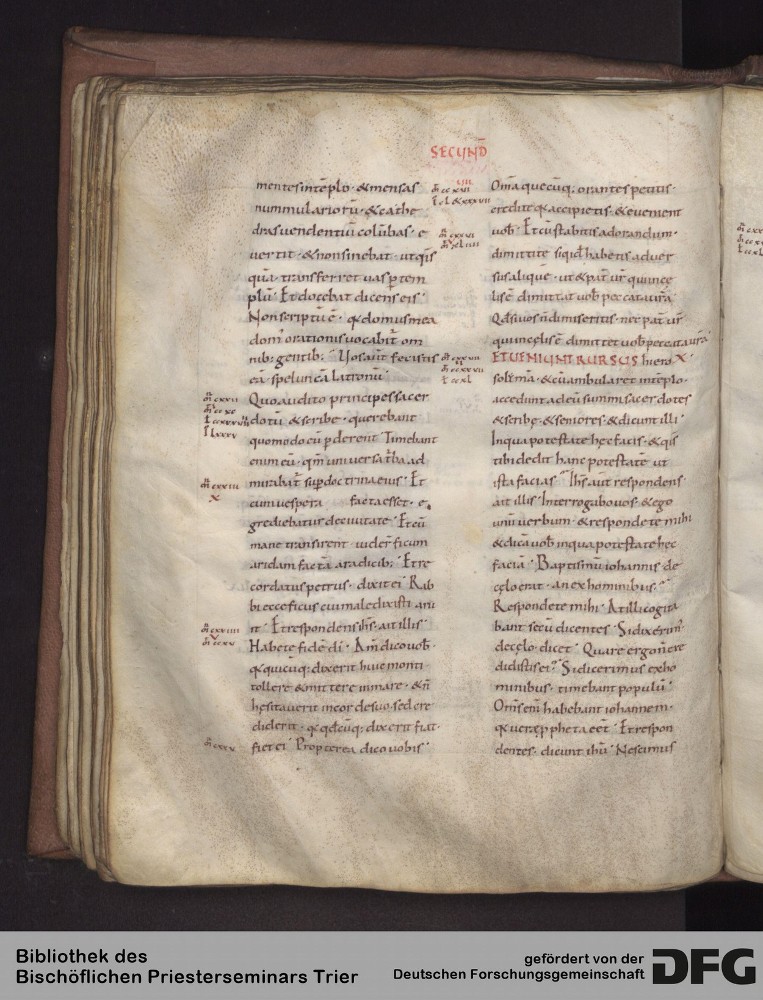 SECUND̄
mentes intēplo · & mensas
nummulariorū · & cathe
dras uendentiū colūbas · e
uertit · & non sinebat · ut q̄s
quā transferret uas p̄ tem
plū · Et docebat dicens eis ·
Non scriptū ē · q̣a domus mea
dom' orationis uocabit̄ om
nib: gentib: · Uos aūt fecistis
eā speluncā latronū ·
Quo audito principes sacer
dotū & scribe · querebant
quomodo eū p̄derent Timebant
enim eū · qm̄ uniuersa t̄ba ad
mirabat̄ sup doctrina eius · Et
cum uespera facta esset · e
grediebatur de ciuitate · Et cū
mane transirent · uider̄ ficum
aridam factā aradicib: · Et re
cordatus petrus · dixit ei Rab
bi ecce ficus cui maledixisti aru
it · Et respondens ih̄s · ait illis ·
Habete fidē dī · Am̄ dico uob̄ ·
q̣a quicūq: dixerit huic monti
tollere & mittere in mare · & n̄
hesitauerit in corde suo · sed cre
diderit · q̣a q̣dcūq: dixerit fiat ·
fiet ei · Propterea dico uobis ·
Om̄a quecūq: orantes petitis ·
credite q̣a accipietis · & euenient
uob̄ · Et cū stabitis ad orandum ·
dimittite siquid habetis aduer
sus alique · ut & pat̄ ur̄ qui in cę
lis ē dimittat uob̄ peccata ur̄a
Qd si uos n̄ dimiseritis · nec pat̄ ur̄
qui in cęlis ē dimittet uob̄ peccata ur̄a
ET UENIUNT RURSUS hiero
solimā · & cū ambularet in tēplo ·
accedunt ad eū summi sacerdotes
& scribe · & seniores · & dicunt illi ·
In qua potestate hec facis · & q̄s
tibi dedit hanc potestatē ut
ista facias · Ih̄s aūt respondens
ait illis · Interrogabo uos · & ego
unū uerbum · & respondete mihi
& dicā uob̄ in qua potestate hec
faciā · Baptismū iohannis de
cęlo erat · an ex hominibus ·
Respondete mihi · At illi cogita
bant secū dicentes · Si dixerim'
de cęlo dicet · Quare ergo n̄ cre
didistis ei · Si dicerimus ex ho
minibus · timebant populū ·
Om̄s enī habebant iohannem ·
q̣a uere p̄pheta eēt · Et respon
dentes · dicunt ihū · Nescimus
Bibliothek des
Bischöflichen Priesterseminars Trier
gefördert von der
Deutschen Forschungsgemeinschaft
DFG